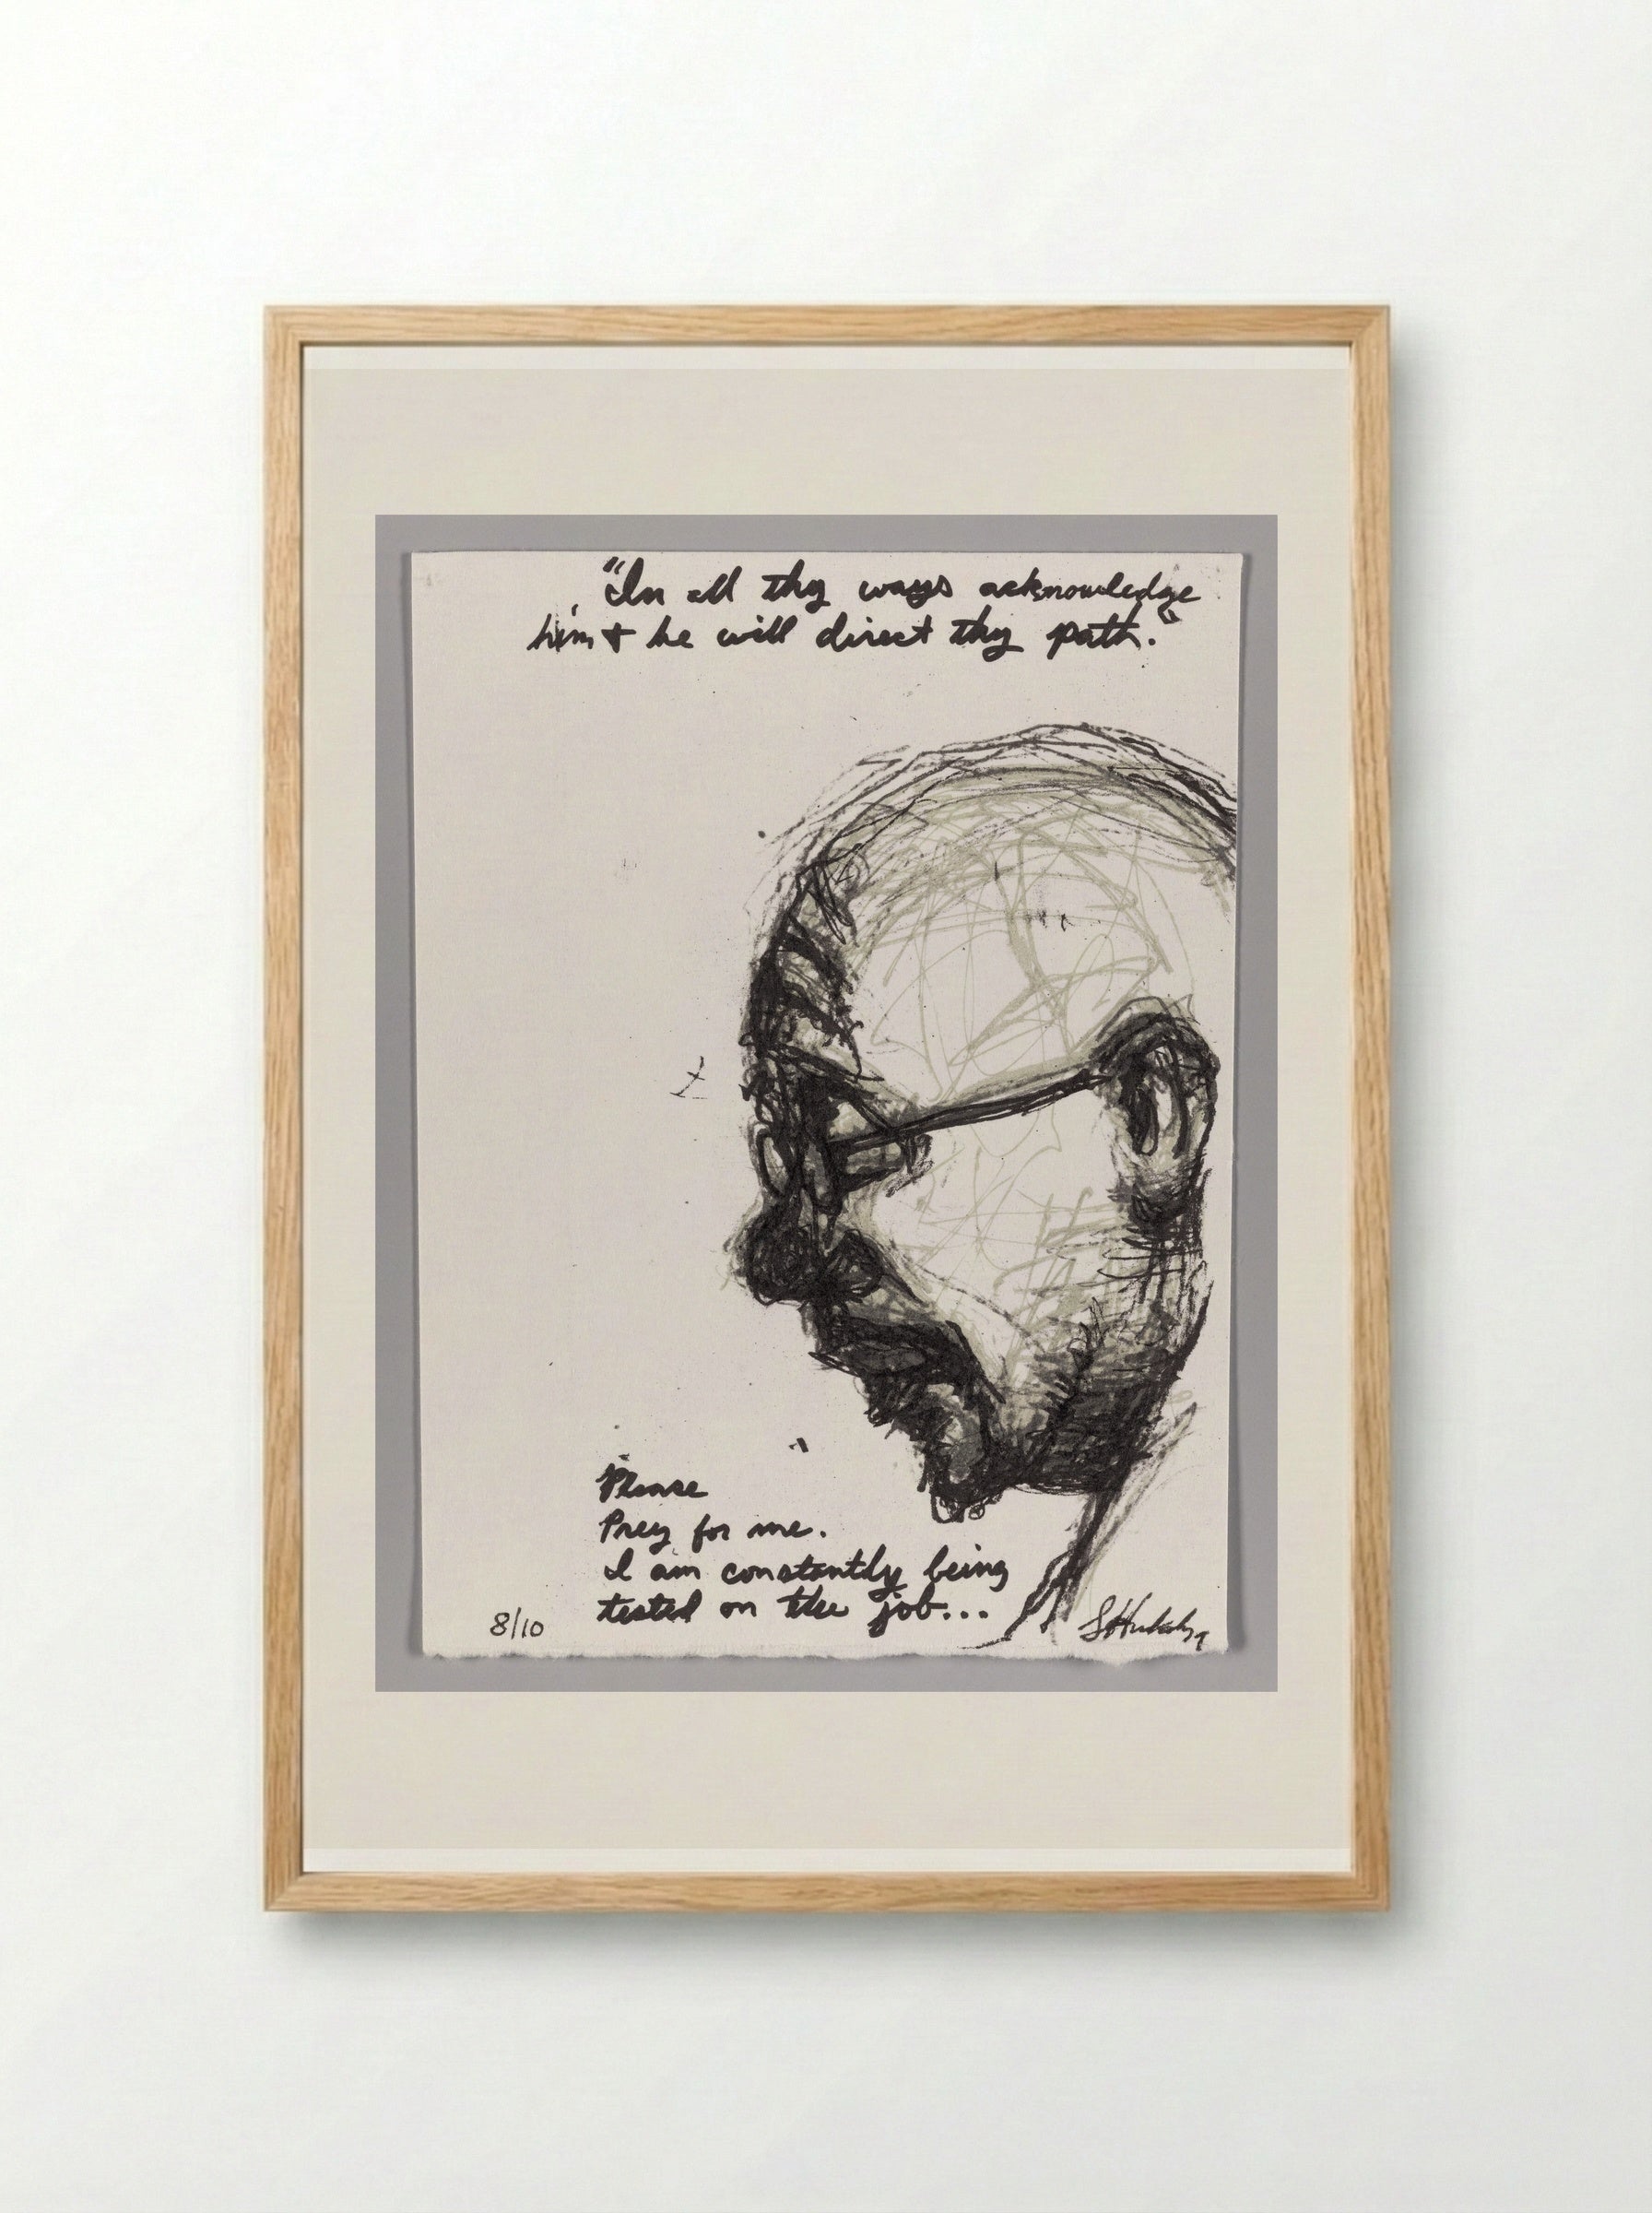 "In all thy ways acknowledge
him + he will direct thy path."
Please
Prey for me.
I am constantly being
tested on the job...
8/10